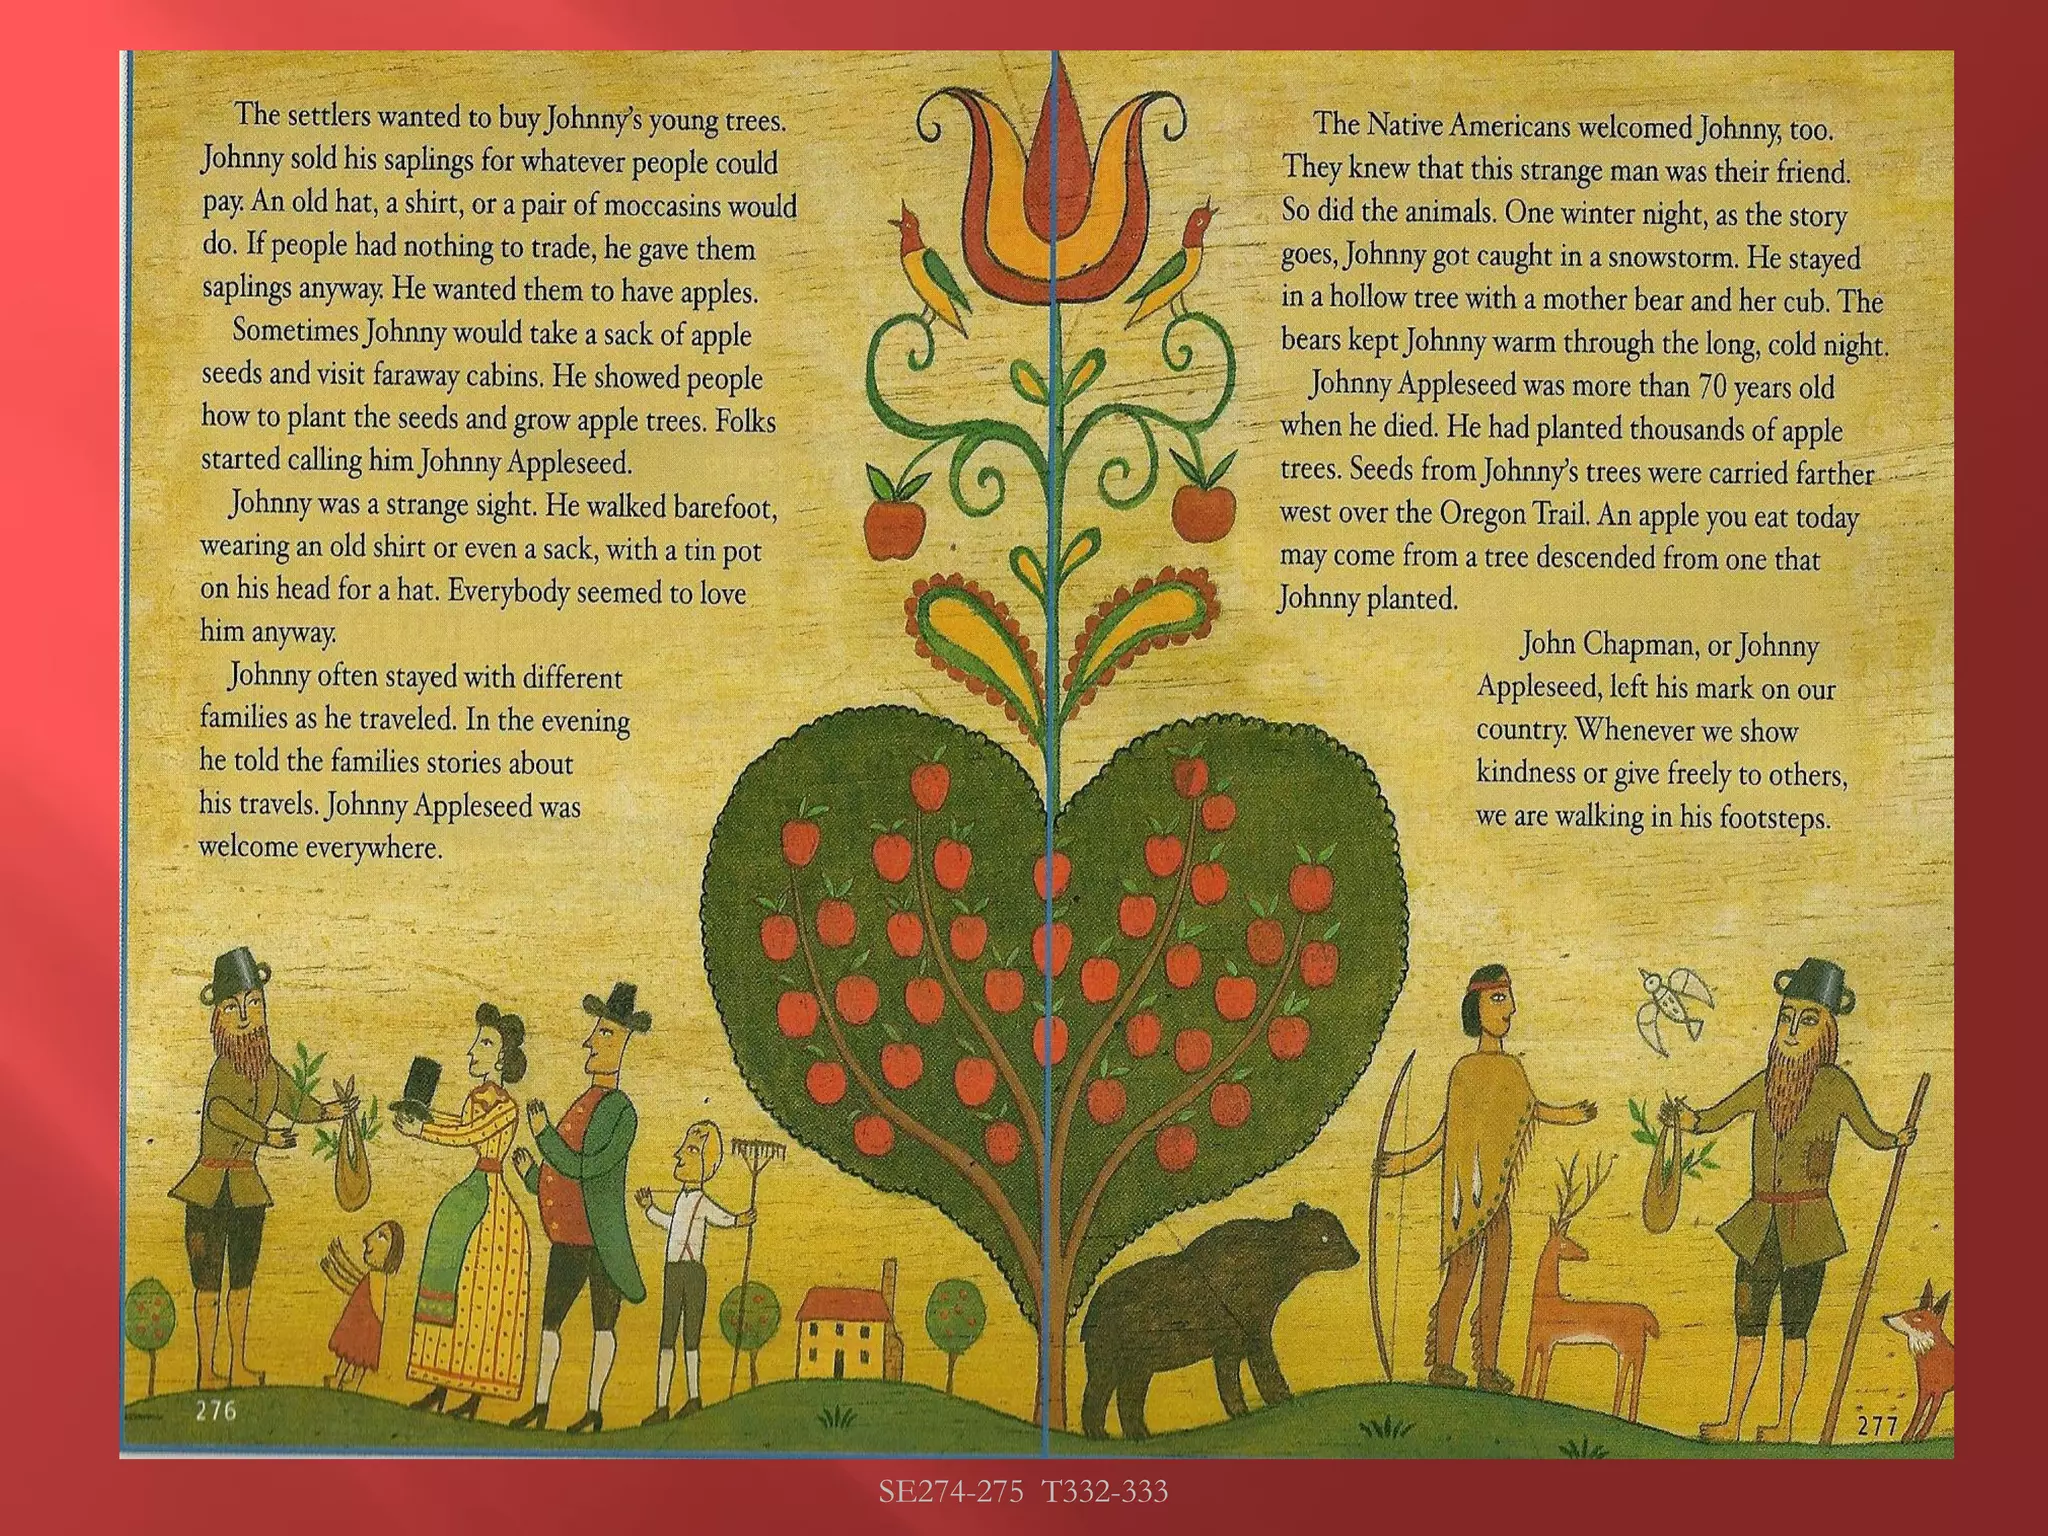 The settlers wanted to buy Johnny's young trees.
Johnny sold his saplings for whatever people could
pay. An old hat, a shirt, or a pair of moccasins would
do. If people had nothing to trade, he gave them
saplings anyway. He wanted them to have apples.
Sometimes Johnny would take a sack of apple
seeds and visit faraway cabins. He showed people
how to plant the seeds and grow apple trees. Folks
started calling him Johnny Appleseed.
Johnny was a strange sight. He walked barefoot,
wearing an old shirt or even a sack, with a tin pot
on his head for a hat. Everybody seemed to love
him anyway.
Johnny often stayed with different
families as he traveled. In the evening
he told the families stories about
his travels. Johnny Appleseed was
welcome everywhere.
276
The Native Americans welcomed Johnny, too.
They knew that this strange man was their friend.
So did the animals. One winter night, as the story
goes, Johnny got caught in a snowstorm. He stayed
in a hollow tree with a mother bear and her cub. The
bears kept Johnny warm through the long, cold night.
Johnny Appleseed was more than 70 years old
when he died. He had planted thousands of apple
trees. Seeds from Johnny's trees were carried farther
west over the Oregon Trail. An apple you eat today
may come from a tree descended from one that
Johnny planted.
John Chapman, or Johnny
Appleseed, left his mark on our
country. Whenever we show
kindness or give freely to others,
we are walking in his footsteps.
277
SE274-275 T332-333